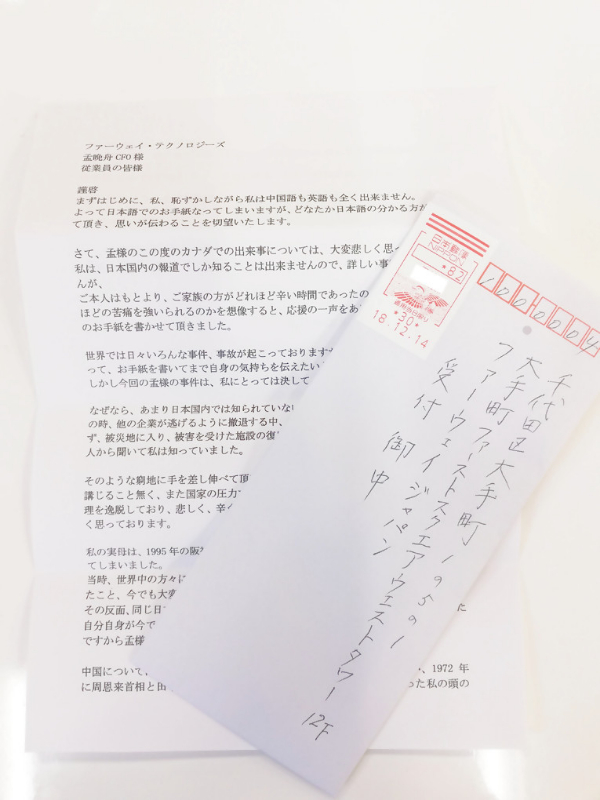 ファーウェイ・テクノロジーズ
孟晩舟 CFO 様
従業員の皆様
謹啓
まずはじめに、私、恥ずかしながら私は中国語も英語も全く出来ません。
よって日本語でのお手紙なってしまいますが、どなたか日本語の分かる方
て頂き、思いが伝わることを切望いたします。
さて、孟様のこの度のカナダでの出来事については、大変悲しく思
私は、日本国内の報道でしか知ることは出来ませんので、詳しい事
んが、
ご本人はもとより、ご家族の方がどれほど辛い時間であったの
ほどの苦痛を強いられるのかを想像すると、応援の一声をあ
のお手紙を書かせて頂きました。
世界では日々いろんな事件、事故が起こっております
って、お手紙を書いてまで自身の気持ちを伝えたい
しかし今回の孟様の事件は、私にとっては決して
なぜなら、あまり日本国内では知られていない
の時、他の企業が逃げるように撤退する中、
ず、被災地に入り、被害を受けた施設の復
人から聞いて私は知っていました。
そのような窮地に手を差し伸べて頂
講じること無く、また国家の圧力
理を逸脱しており、悲しく、辛
く思っております。
私の実母は、1995 年の阪
てしまいました。
当時、世界中の方々に
たこと、今でも大変
その反面、同じ日
自分自身が今で
ですから孟様
中国について、
、1972 年
に周恩来首相と田
った私の頭の
日本郵便
NIPPON
*82
*30*
18.12.14
1000004
千代田区大手町1の5の1
大手町ファーストスクエアウェストタワー12F
ファーウェイジャパン
受付 御中